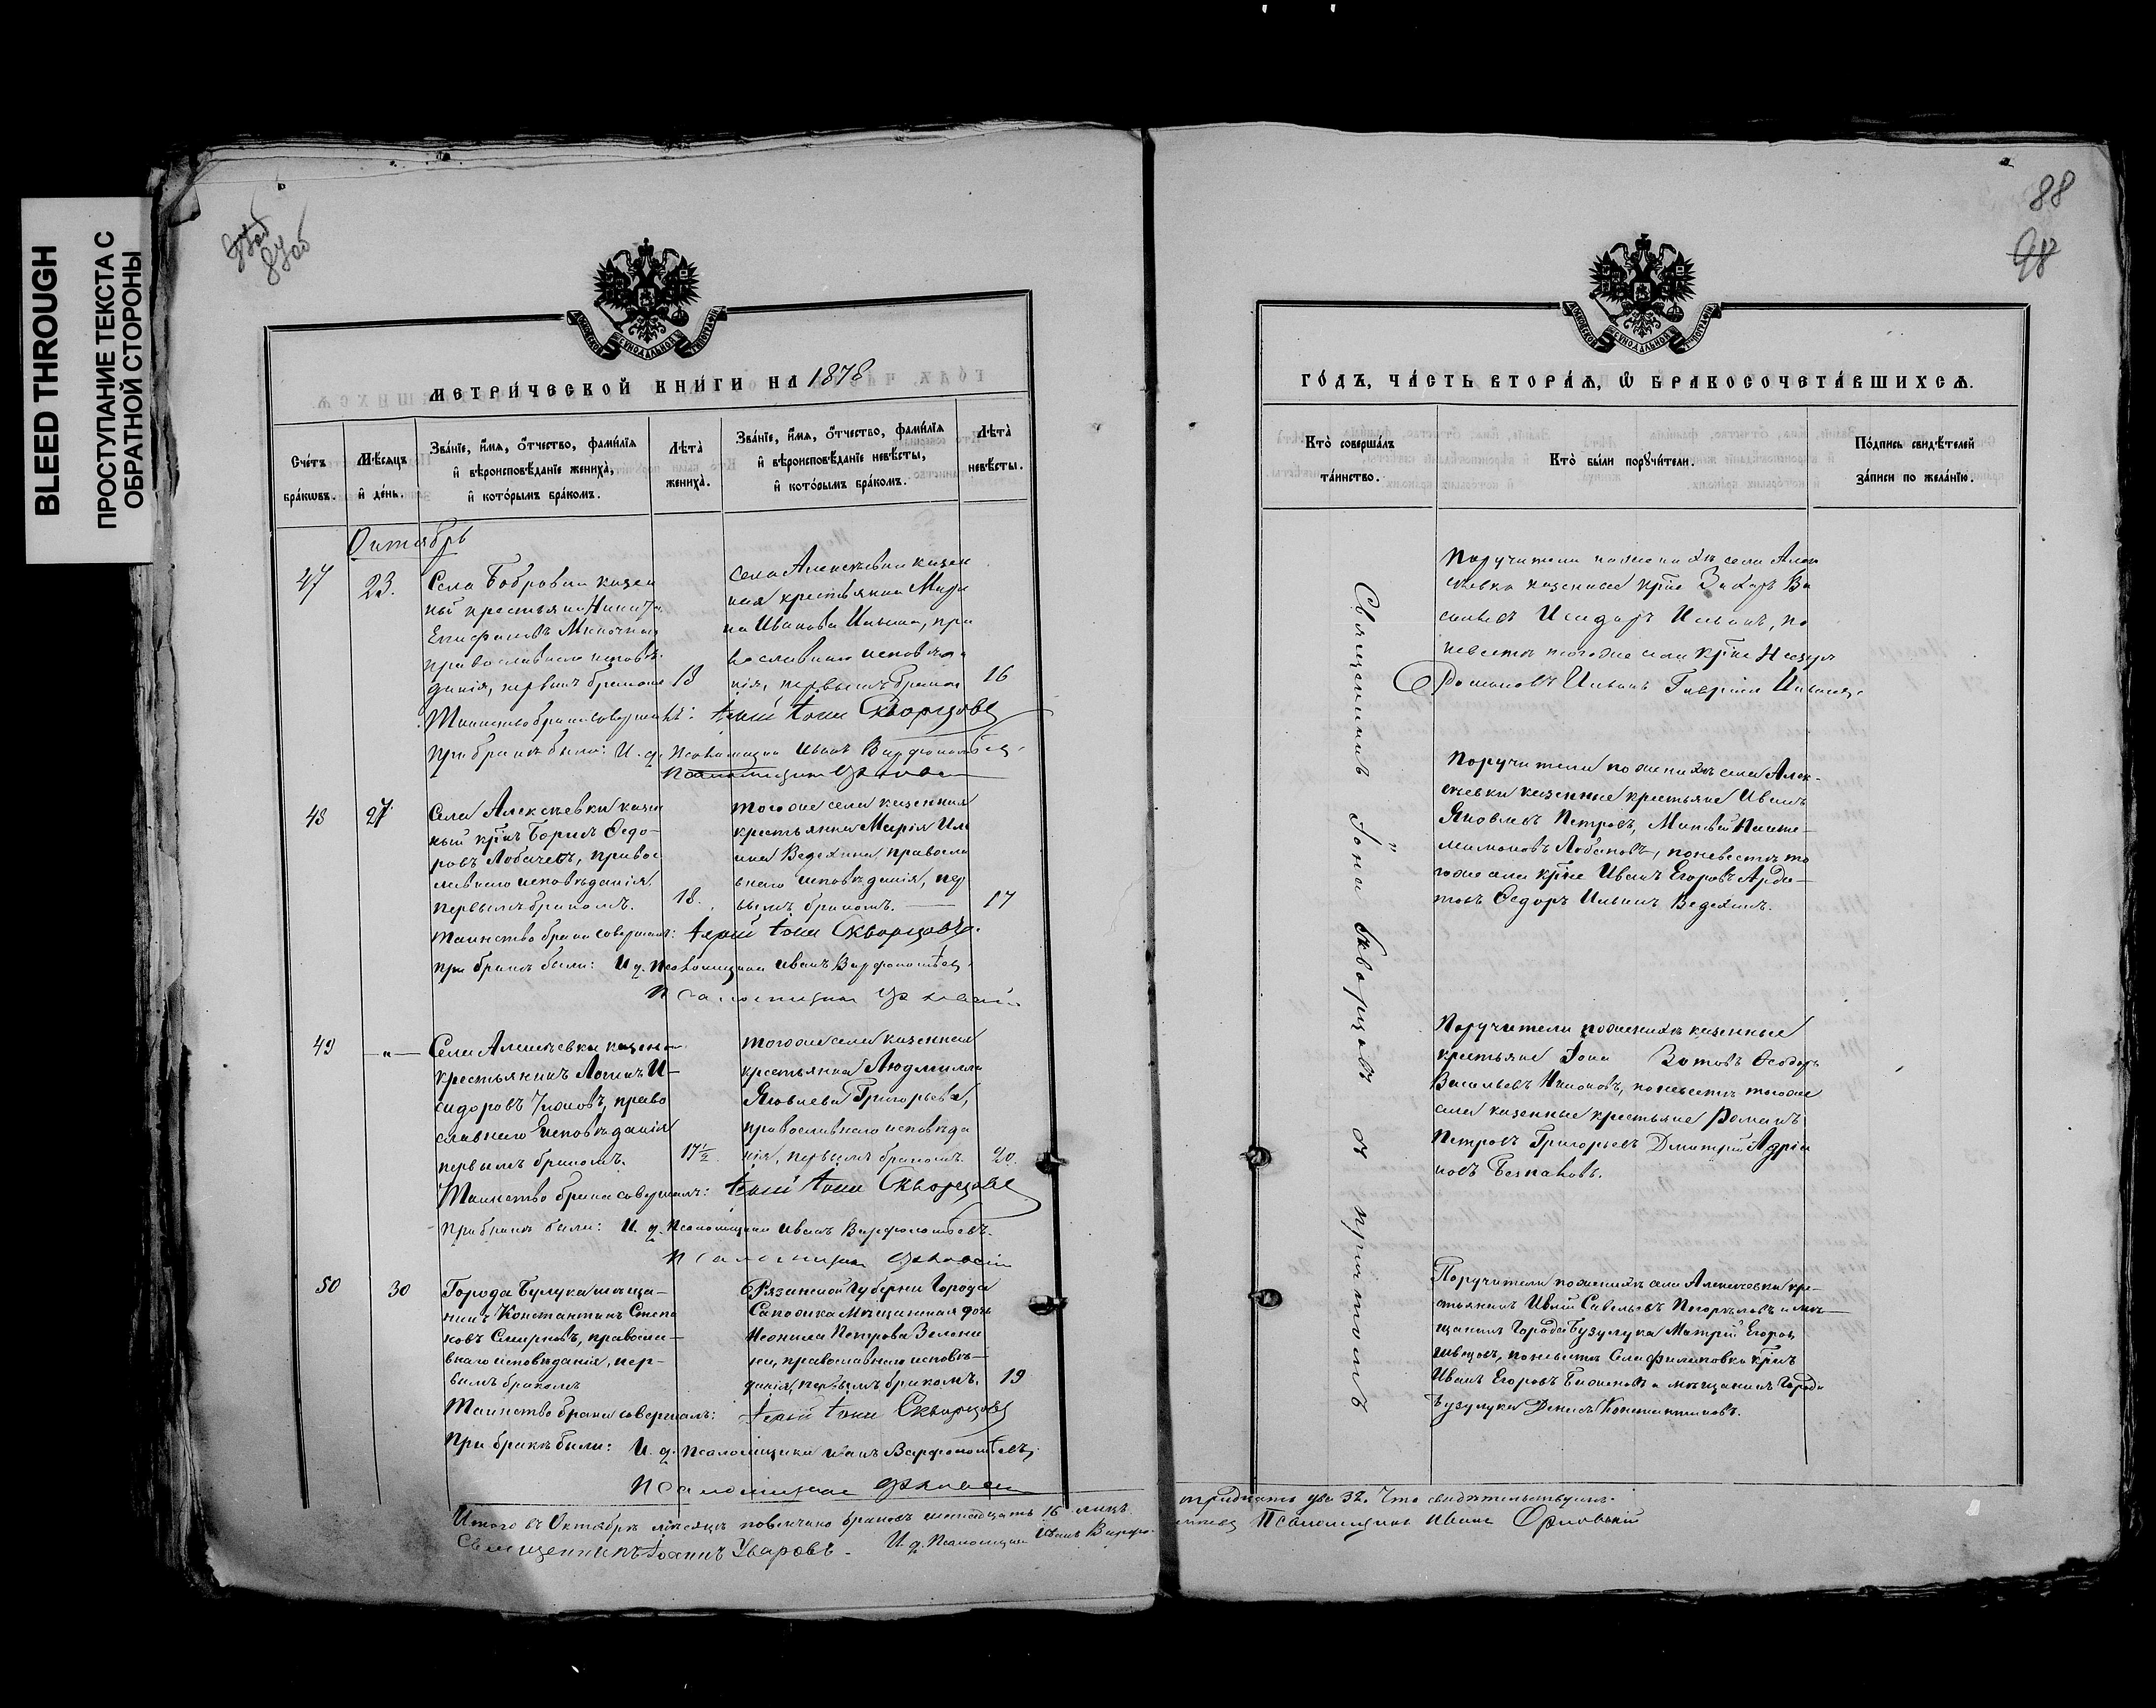 BLEED THROUGH
ПРОСТУПАНИЕ ТЕКСТА С
ОБРАТНОЙ СТОРОНЫ
87об
88
МЕТРИ́ЧЕСКОЙ КНИ́ГИ НА 1878
Сче́тъ бра́кѡвъ.
Мѣ́сяцъ и҆ де́нь.
Зва́нїе, и҆́мя, ѻ҆́тчество, фами́лїя и҆ вѣроисповѣ́данїе жениха̀, и҆ кото́рымъ бра́комъ.
Лѣта̀ жениха̀.
Зва́нїе, и҆́мя, ѻ҆́тчество, фами́лїя и҆ вѣроисповѣ́данїе невѣ́сты, и҆ кото́рымъ бра́комъ.
Лѣта̀ невѣ́сты.
Октябрь
47
23.
Села Бобровки казен
ный крестьянъ Никита
Епифановъ
православнаго исповѣ
данія, первымъ бракомъ
18
села Алексѣевки казен
ная крестьянка Мари
на Иванова Ильина, пра
вославнаго исповѣда
нія, первымъ бракомъ
16
Таинство брака совершалъ: Іерей Іона Скворцовъ
При бракѣ были: И. д. Псаломщика Иванъ Варфоломѣевъ
48
27
Села Алексѣевки казен
ный кр҃нъ Борисъ Ѳедо-
ровъ Лобачевъ, право
славнаго исповѣданія
первымъ бракомъ.
18.
тогоже села казенная
крестьянка Марія Иль
ина Ведехина, правосла
внаго исповѣданія, пер
вымъ бракомъ.
17
Таинство брака совершалъ: Іерей Іона Скворцовъ.
При бракѣ были: И. д. Псаломщика Иванъ Варфоломѣевъ
Псаломщикъ
49
—"—
Села Алексѣевки казен
крестьянинъ Логинъ И-
сидоровъ право
славнаго исповѣданія
первымъ бракомъ.
17½
тогоже села казенная
крестьянка Людмилла
Яковлева Григорьева,
православнаго исповѣда
нія, первымъ бракомъ.
20.
Таинство брака совершалъ: Іерей Іона Скворцовъ
При бракѣ были: И. д. Псаломщика Иванъ Варфоломѣевъ.
Псаломщикъ
50
30
Города Бузулука мѣща-
нинъ Константинъ Степа
новъ Смирновъ, правосла-
внаго исповѣданія, пер-
вымъ бракомъ
Рязанской Губерніи Города
Сапожка Мѣщанская дочь
Неонила Петрова Зелени
на, православнаго исповѣ-
данія, первымъ бракомъ.
19
Таинство брака совершалъ: Іерей Іона Скворцовъ
При бракѣ были: И. д. Псаломщика Иванъ Варфоломѣевъ
Псаломщикъ
Итого въ Октябрѣ мѣсяцѣ повѣнчано браковъ шестнадцать 16 лицъ
Священникъ Іоаннъ Уваровъ. И. д. Псаломщика Иванъ Варфо-
ГО́ДЪ, ЧА́СТЬ ВТОРА́Я, Ѽ БРАКОСОЧЕТА́ВШИХСЯ.
Кто̀ соверша́лъ та́инство.
Кто̀ бы́ли поручи́тели.
По́дпись свидѣ́телей за́писи по жела́нїю.
Священникъ Іона Скворцовъ съ причтомъ
Поручители по женихѣ села Алек
сѣевки казенные кр҃не Захаръ Ва
сильевъ Исидоръ Ивановъ, по
невѣстѣ тогоже села кр҃не
Романовъ Ильинъ Гавріилъ
Поручители по женихѣ села Алек-
сѣевки казенные крестьяне Иванъ
Яковлевъ Петровъ, Матвѣй Панте-
лимоновъ Лобановъ, по невѣстѣ то
гоже села кр҃не Иванъ Егоровъ Арда-
товъ Ѳедоръ Ильинъ Ведехинъ.
Поручители по женихѣ казенные
крестьяне Іона Зотовъ Ѳеодоръ
Васильевъ по невѣстѣ тогоже
села казенные крестьяне Романъ
Петровъ Григорьевъ Дмитрій Адріа
новъ
Поручители по женихѣ села Алексѣевки кре-
стьянинъ Савельевъ Погорѣловъ и мѣ-
щанинъ Города Бузулука Егоровъ
Швецовъ, по невѣстѣ Села Филиповки кр҃нъ
Иванъ Егоровъ и мѣщанинъ Города
Бузулука Денисъ Константиновъ.
тридцать два 32. Что свидѣтельствуемъ.
Псаломщикъ Иванъ Орловскій